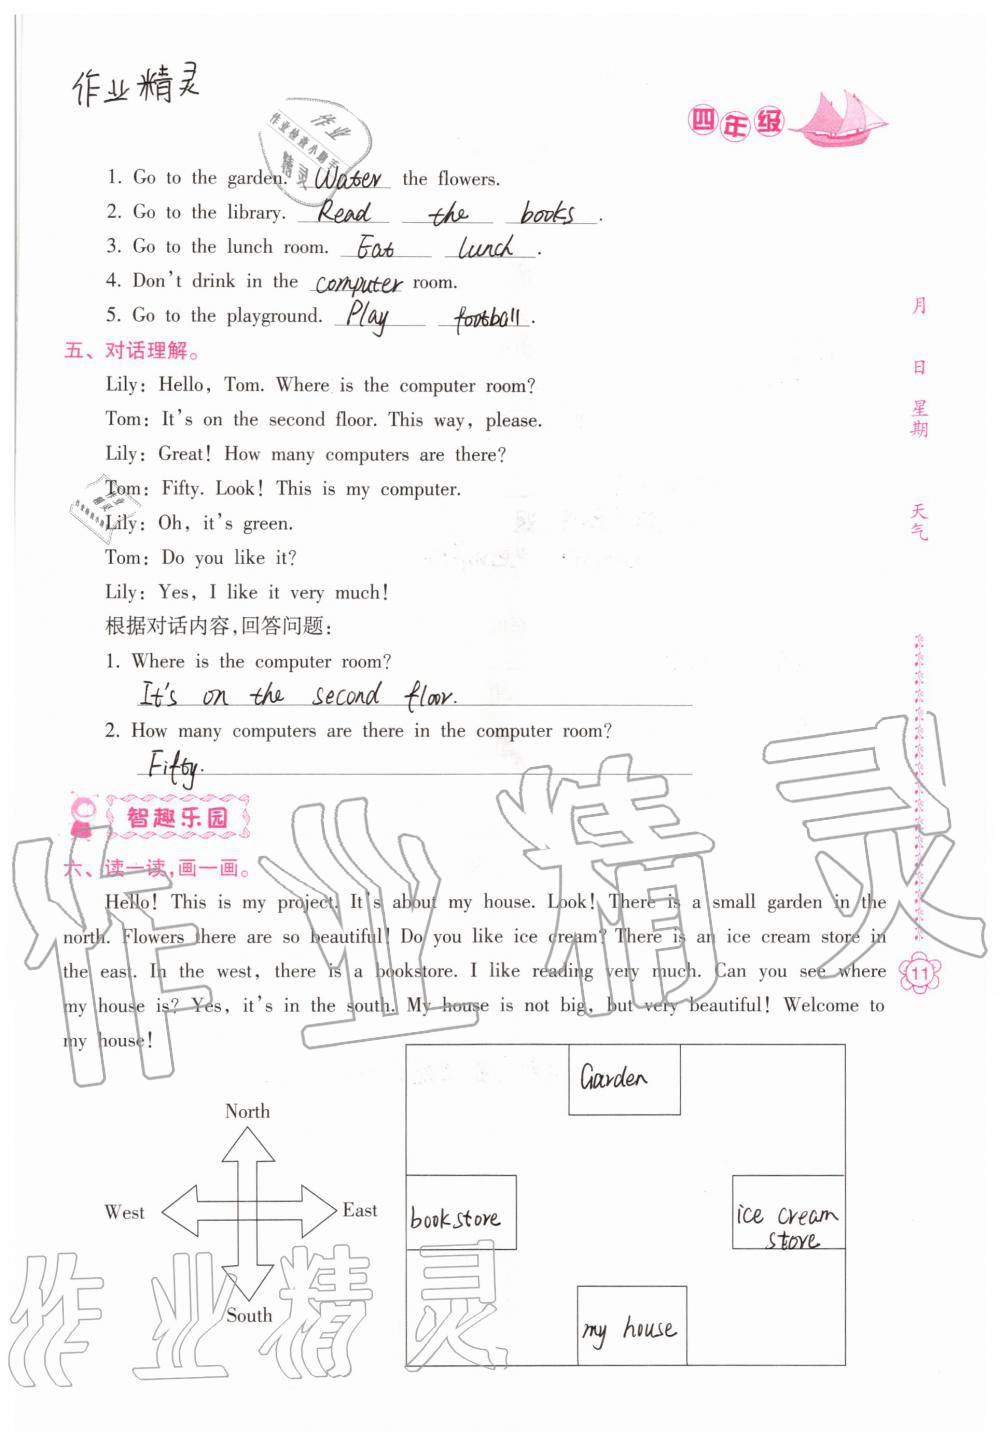 作业精灵
四年级
作业
作业检查小助手
精灵
1. Go to the garden. Water the flowers.
2. Go to the library. Read the books.
3. Go to the lunch room. Eat lunch.
4. Don't drink in the computer room.
5. Go to the playground. Play football.
月
日
星期
天气
五、对话理解。
Lily: Hello, Tom. Where is the computer room?
Tom: It's on the second floor. This way, please.
Lily: Great! How many computers are there?
Tom: Fifty. Look! This is my computer.
Lily: Oh, it's green.
Tom: Do you like it?
Lily: Yes, I like it very much!
根据对话内容,回答问题:
1. Where is the computer room?
It's on the second floor.
2. How many computers are there in the computer room?
Fifty.
智趣乐园
六、读一读,画一画。
Hello! This is my project. It's about my house. Look! There is a small garden in the
north. Flowers there are so beautiful! Do you like ice cream? There is an ice cream store in
the east. In the west, there is a bookstore. I like reading very much. Can you see where
my house is? Yes, it's in the south. My house is not big, but very beautiful! Welcome to
my house!
11
作业精灵
North
West
East
South
Garden
bookstore
ice cream
store
my house
作业精灵